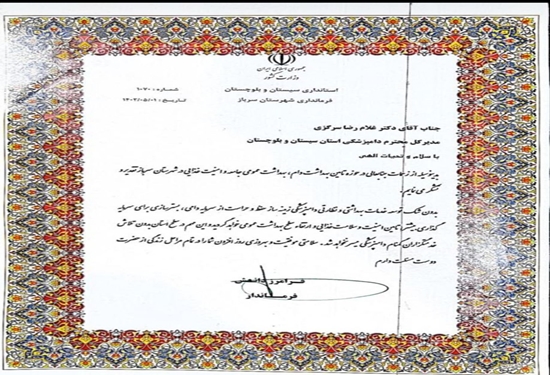 جمهوری اسلامی ایران
وزارت کشور
استانداری سیستان و بلوچستان
فرمانداری شهرستان سرباز
شماره: ۱۰۷۰
تاریخ: ۱۴۰۲/۵/۱
جناب آقای دکتر غلام رضا سرگزی
مدیرکل محترم دامپزشکی استان سیستان و بلوچستان
با سلام و تحیات الهی
بدینوسیله از زحمات جنابعالی در حوزه تامین بهداشت دام، بهداشت عمومی جامعه و امنیت غذایی در شهرستان سرباز تقدیر و
تشکر می نمایم.
بدون شک توسعه خدمات بهداشتی و نظارتی دامپزشکی زمینه ساز حفظ و حراست از سرمایه دامی، بسترسازی برای سرمایه
گذاری بیشتر، تامین امنیت و سلامت غذایی و ارتقاء سطح بهداشت عمومی خواهد گردید و این مهم در سطح استان بدون تلاش
خدمتگزاران گمنام دامپزشکی میسر نخواهد شد. سلامتی موفقیت و بهروزی روز افزون شما را در تمام مراحل زندگی از حضرت
دوست مسئلت دارم
فرماندار